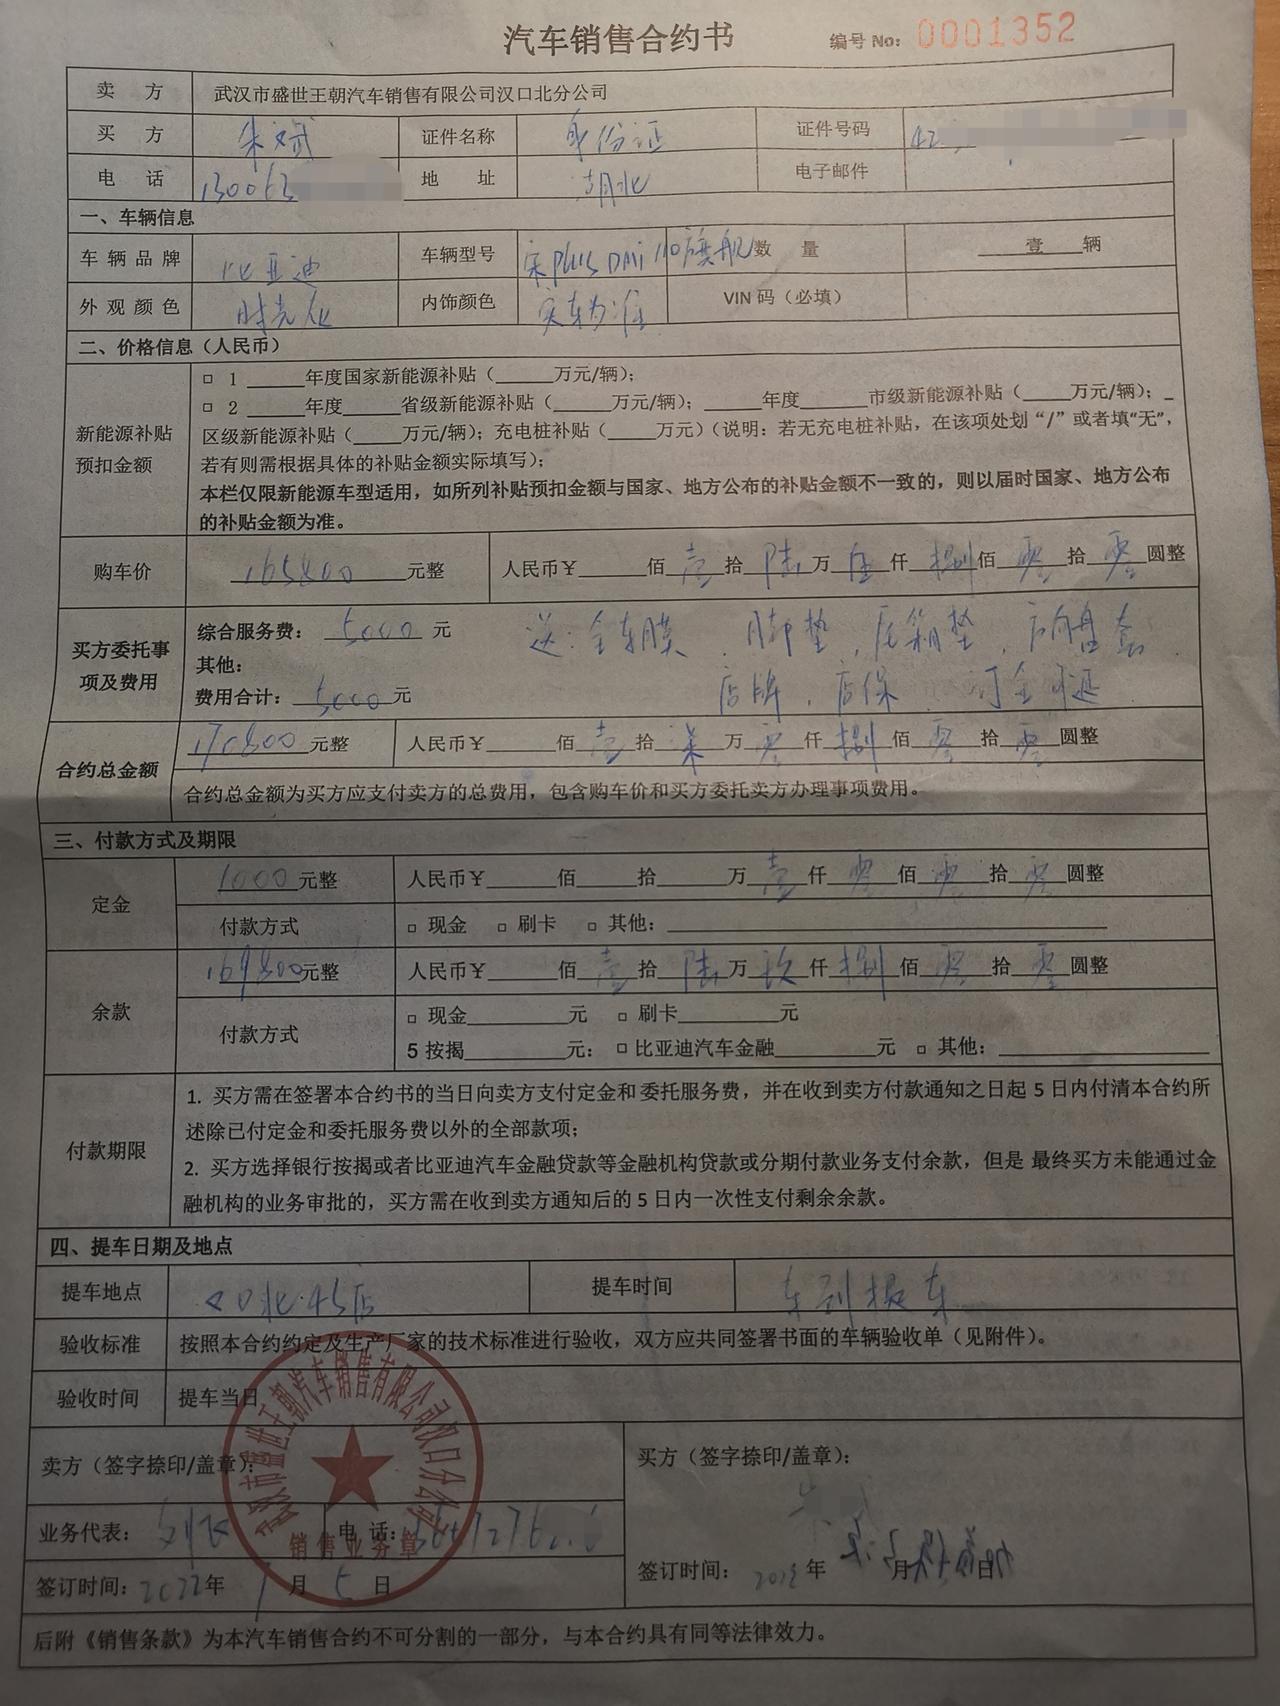 汽车销售合约书 编号 No: 0001352
卖方 武汉市盛世王朝汽车销售有限公司汉口北分公司
买方 朱斌 证件名称 身份证 证件号码 42
电话 130063 地址 湖北 电子邮件
一、车辆信息
车辆品牌 比亚迪 车辆型号 宋PLUS DMi 110旗舰 数量 壹 辆
外观颜色 时光灰 内饰颜色 实车为准 VIN 码（必填）
二、价格信息（人民币）
新能源补贴预扣金额
□ 1 ____年度国家新能源补贴（____万元/辆）；
□ 2 ____年度____省级新能源补贴（____万元/辆）；____年度____市级新能源补贴（____万元/辆）；_
区级新能源补贴（____万元/辆）；充电桩补贴（____万元）（说明：若无充电桩补贴，在该项处划“/”或者填“无”，
若有则需根据具体的补贴金额实际填写）；
本栏仅限新能源车型适用，如所列补贴预扣金额与国家、地方公布的补贴金额不一致的，则以届时国家、地方公布
的补贴金额为准。
购车价 165800 元整 人民币￥____佰 壹 拾 陆 万 伍 仟 捌 佰 零 拾 零 圆整
买方委托事项及费用
综合服务费： 5000 元 送：全车膜、脚垫，后箱垫，方向盘套
其他：
费用合计： 5000 元 店牌，店保
合约总金额 170800 元整 人民币￥____佰 壹 拾 柒 万 零 仟 捌 佰 零 拾 零 圆整
合约总金额为买方应支付卖方的总费用，包含购车价和买方委托卖方办理事项费用。
三、付款方式及期限
定金 1000 元整 人民币￥____佰____拾____万 壹 仟 零 佰 零 拾 零 圆整
付款方式 □ 现金 □ 刷卡 □ 其他：____
余款 169800 元整 人民币￥____佰 壹 拾 陆 万 玖 仟 捌 佰 零 拾 零 圆整
付款方式 □ 现金____元 □ 刷卡____元
5 按揭____元： □ 比亚迪汽车金融____元 □ 其他：____
付款期限
1. 买方需在签署本合约书的当日向卖方支付定金和委托服务费，并在收到卖方付款通知之日起 5 日内付清本合约所
述除已付定金和委托服务费以外的全部款项；
2. 买方选择银行按揭或者比亚迪汽车金融贷款等金融机构贷款或分期付款业务支付余款，但是 最终买方未能通过金
融机构的业务审批的，买方需在收到卖方通知后的 5 日内一次性支付剩余余款。
四、提车日期及地点
提车地点 汉口北4S店 提车时间 车到提车
验收标准 按照本合约约定及生产厂家的技术标准进行验收，双方应共同签署书面的车辆验收单（见附件）。
验收时间 提车当日
卖方（签字捺印/盖章）： 买方（签字捺印/盖章）：
武汉市盛世王朝汽车销售有限公司汉口北分公司
销售业务章
业务代表： 电话：
签订时间： 2022 年 1 月 5 日 签订时间： 年 月 日
后附《销售条款》为本汽车销售合约不可分割的一部分，与本合约具有同等法律效力。